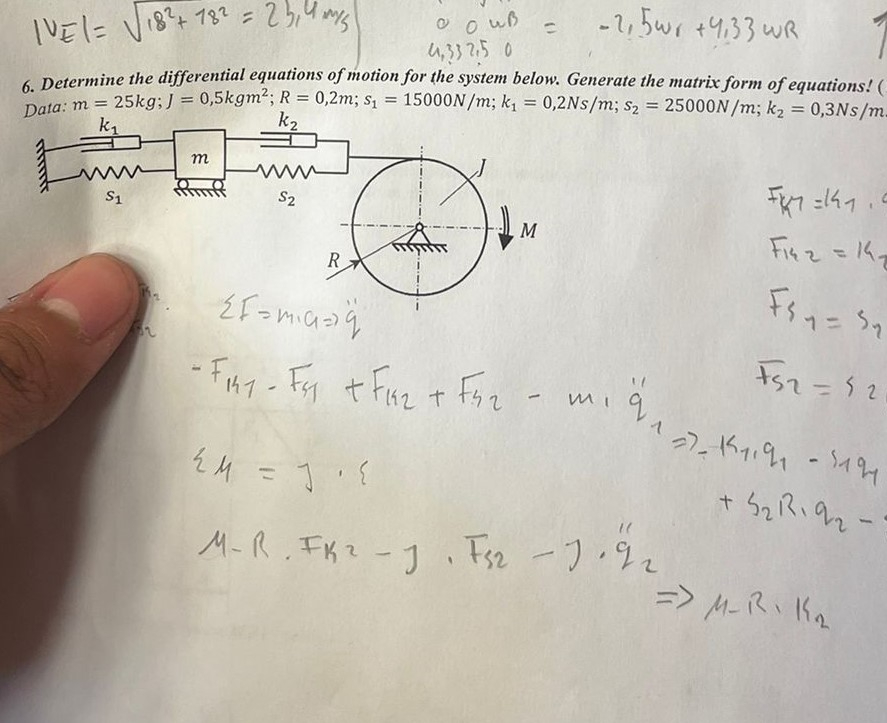 |VE| = √18² + 18² = 25,4 m/s
0 0 ωB = -2,5ωr + 4,33 ωR
4,33 2,5 0
6. Determine the differential equations of motion for the system below. Generate the matrix form of equations! (
Data: m = 25kg; J = 0,5kgm²; R = 0,2m; s₁ = 15000N/m; k₁ = 0,2Ns/m; s₂ = 25000N/m; k₂ = 0,3Ns/m.
k₁
k₂
m
s₁
s₂
J
M
R
FK1 = K1 .
FK2 = K
FS1 = S1
FS2 = S2
ΣF = m.a => q̈
- FK1 - FS1 + FK2 + FS2 - m . q̈1
=> - K1.q1 - S1q1
+ S2R.q2 -
ΣM = J . ε
M - R . FK2 - J . FS2 - J . q̈2
=> M - R . K2